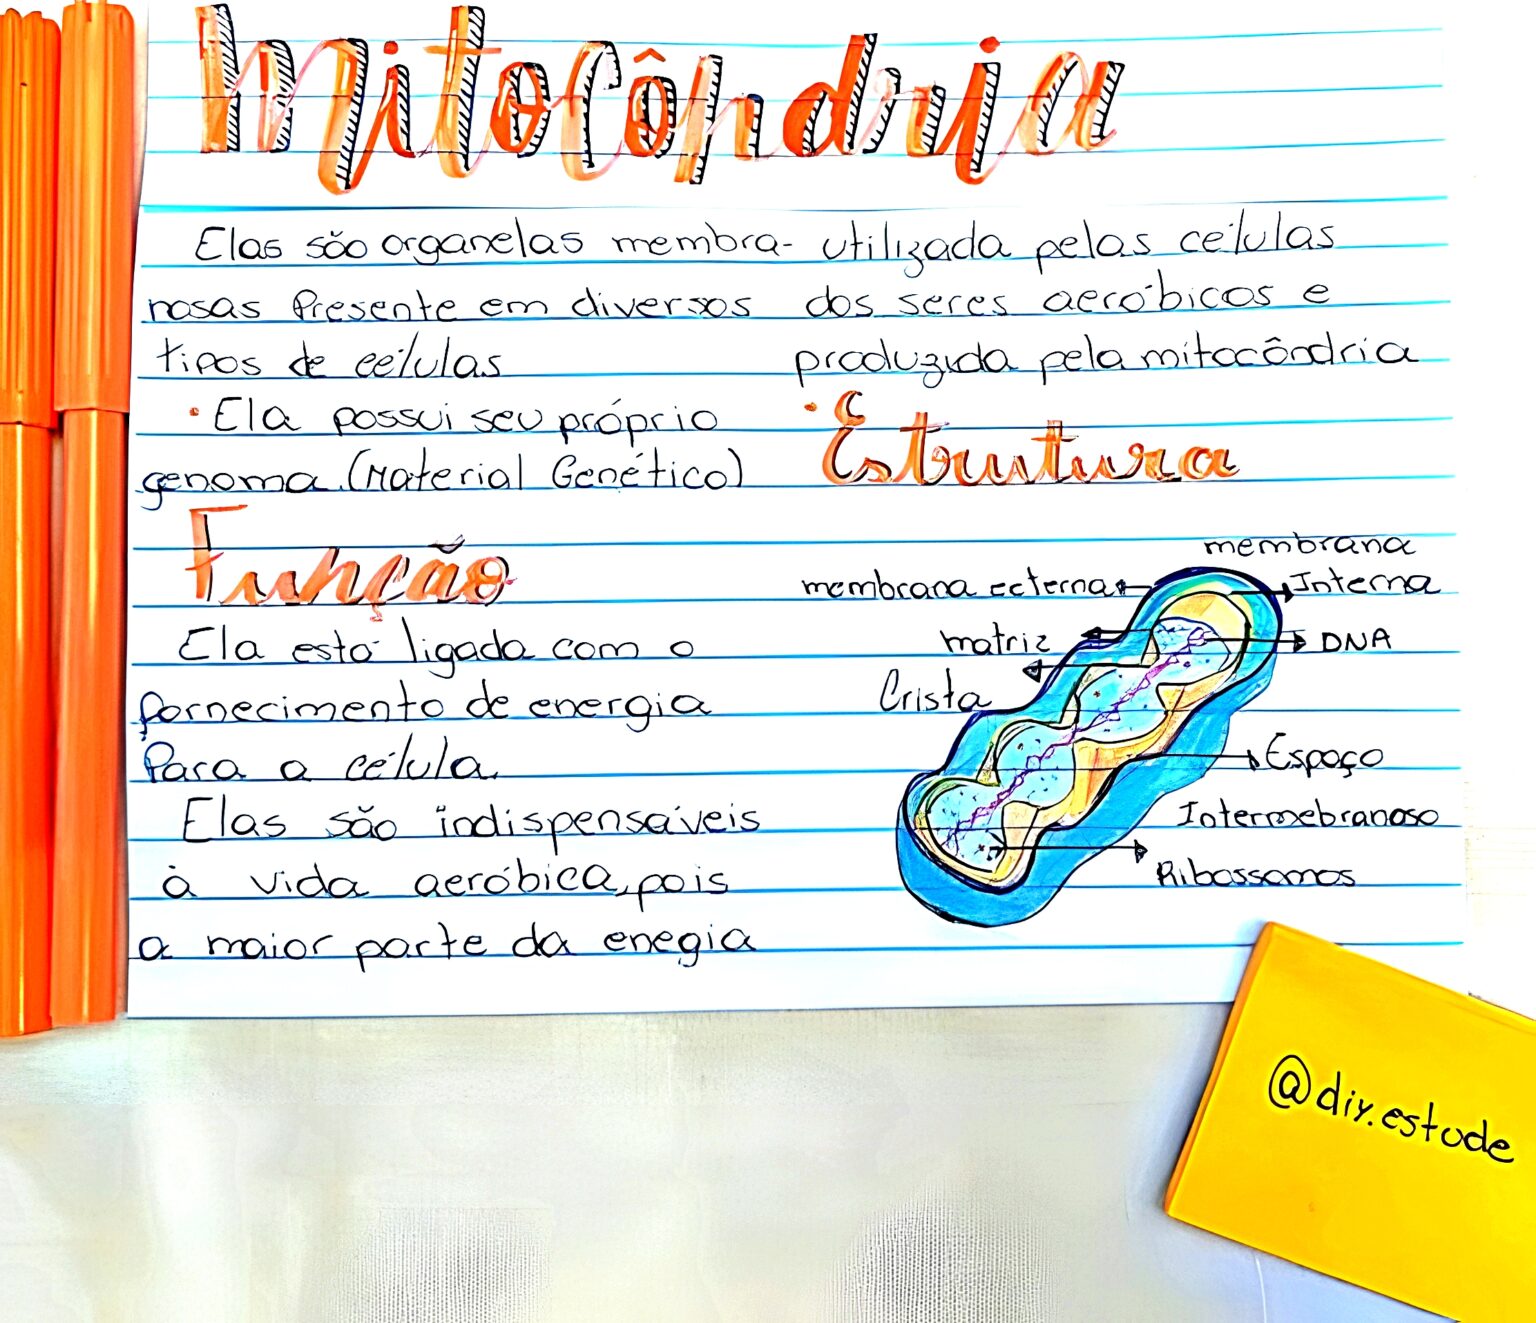 Mitocôndria
Elas são organelas membra-
nosas Presente em diversos
tipos de células
• Ela possui seu próprio
genoma. (Material Genético)
Função
Ela está ligada com o
fornecimento de energia
Para a célula.
Elas são indispensáveis
à vida aeróbica, pois
a maior parte da enegia
utilizada pelas células
dos seres aeróbicos e
produzida pela mitocôndria
• Estrutura
membrana
membrana ecterna
Interna
matriz
DNA
Crista
Espaço
Intermebranoso
Ribossomos
@diy.estude